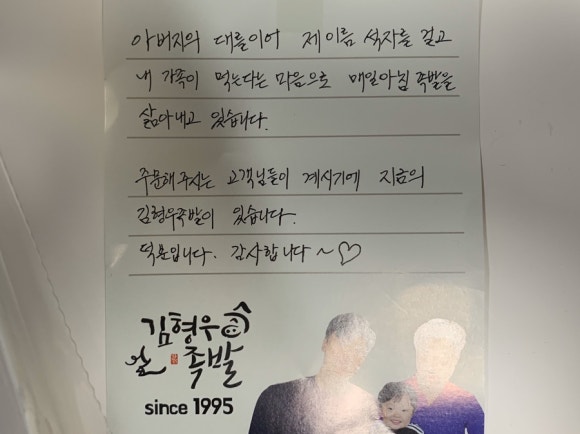 아버지의 대를이어 제 이름 석자를 걸고
내 가족이 먹는다는 마음으로 매일아침 족발을
삶아내고 있습니다.
주문해주시는 고객님들이 계시기에 지금의
김형우족발이 있습니다.
덕분입니다. 감사합니다~♡
김형우
족발
since 1995